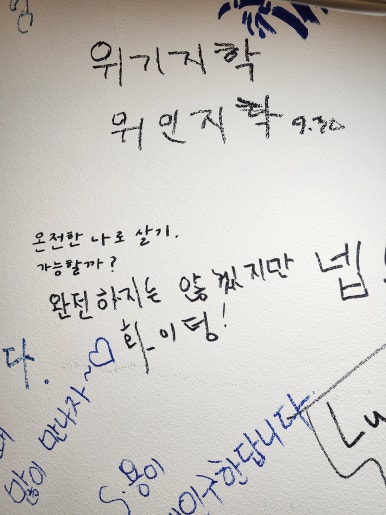 위기지학
위인지학 9.30
온전한 나로 살기.
가능할까?
완전하지는 않겠지만 넵
화이팅!
다.
많이 만나자~♡
S.용이
구한답니다
Lu